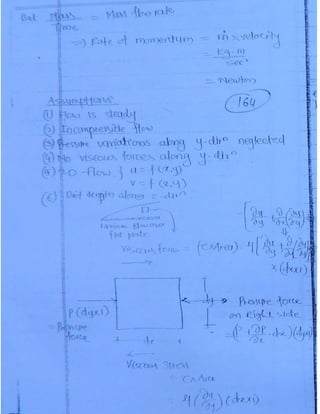 But Mass = Mass flow rate
Time
=) Rate of momentum = ṁ x velocity
= Kg-m
Sec²
= Newton
Assumptions
164
① Flow is steady
② Incompressible flow
③ Pressure variations along y-dirⁿ neglected
④ No viscous forces along y-dirⁿ
2D-flow, } u = f(x,y)
v = f(x,y)
Unit depth along z-dirⁿ
Laminar flow over
flat plate
Viscous force = (τ x Area)
x (dxx1)
P(dyx1)
dy
Pressure force
on Right side
= Pressure
force
dx
= (P + ∂P/∂x · dx)(dyx1)
Viscous stress
= τ x Area
(∂u/∂y)(dxx1)